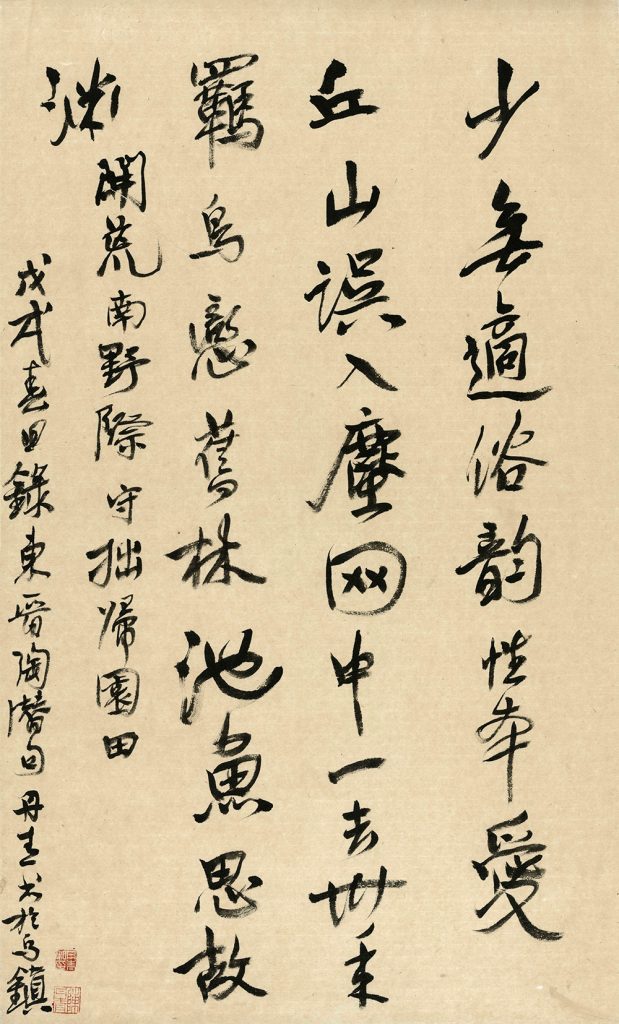 少無適俗韵性本愛
丘山誤入塵网中一去卅年
羈鳥戀舊林池魚思故
淵開荒南野際守拙歸園田
戊戌春日錄東晉陶潛句丹青书於乌鎮